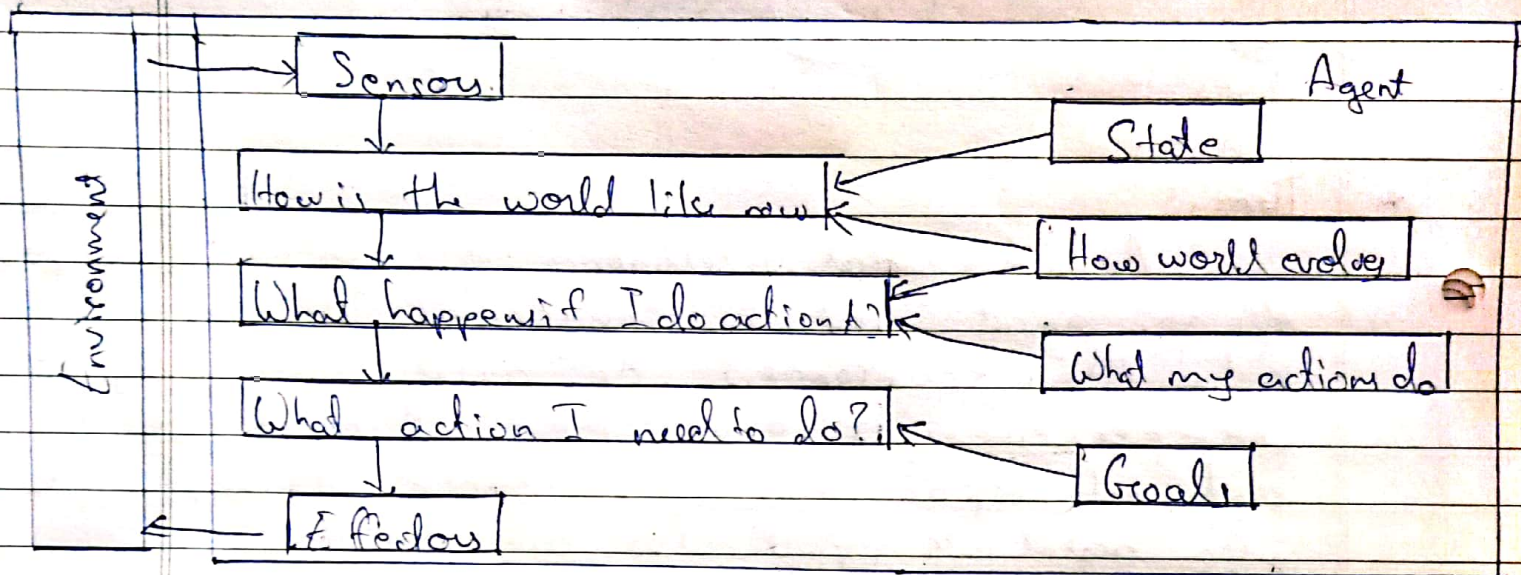 Sensors
Agent
State
How is the world like now
How world evolves
What happens if I do action A?
What my actions do
What action I need to do?
Goals
Effectors
Environment